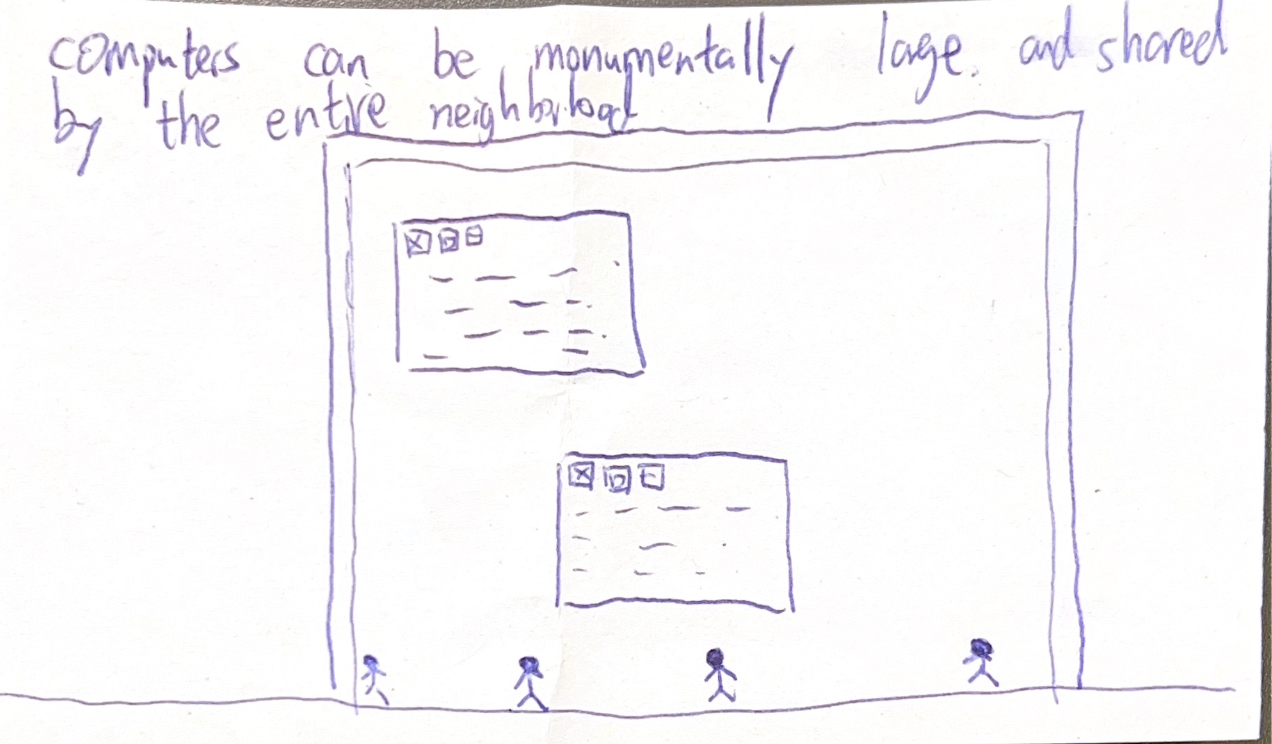 computers can be monumentally lage. and shared
by the entire neighborhood